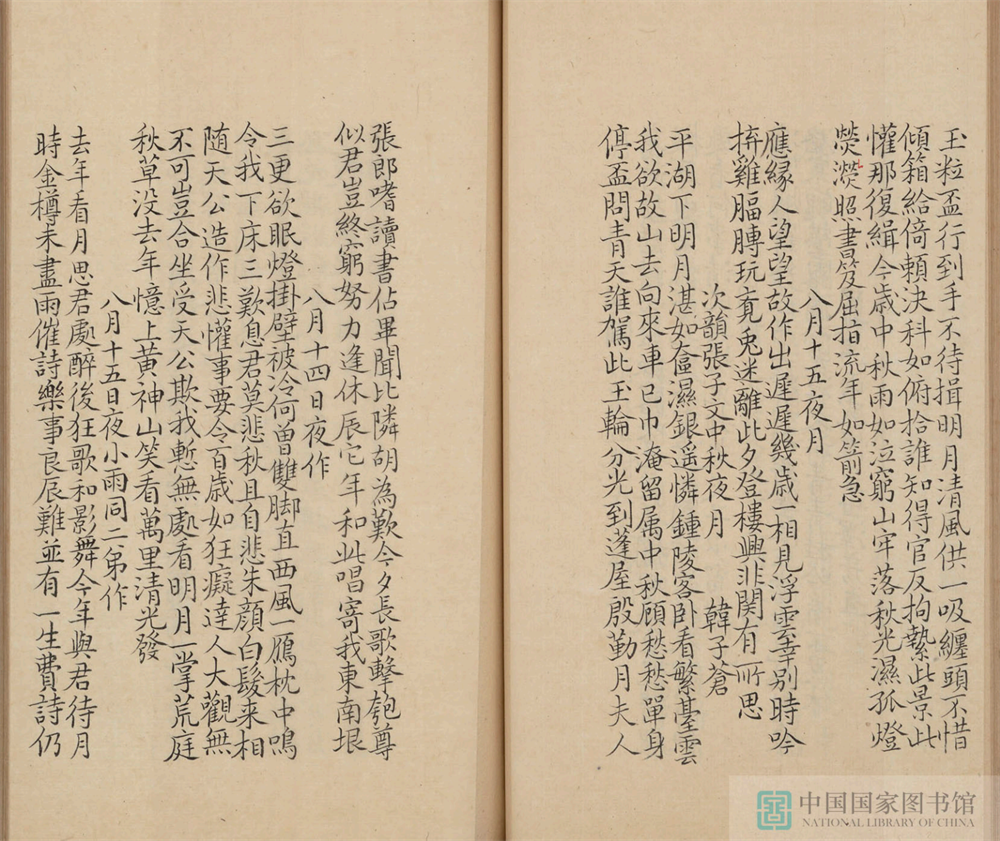 玉粒盃行到手不待揖明月清風供一吸纏頭不惜
傾箱給倚賴決科如俯拾誰知得官反拘縶此景此
懽那復緝今歲中秋雨如泣窮山牢落秋光濕孤燈
熒熒照書笈屈指流年如箭急
八月十五夜月
應緣人望望故作出遲遲幾歲一相見浮雲幸別時吟
捹雞腷膊玩竟兎迷離此夕登樓興非關有所思
次韻張子文中秋夜月 韓子蒼
平湖下明月湛如奩濕銀遥憐鍾陵客卧看繁臺雲
我欲故山去向來車已巾淹留属中秋顧愁愁單身
停盃問青天誰駕此玉輪分光到蓬屋殷勤月夫人
張郎嗜讀書佔畢聞比隣胡為歎今夕長歌擊匏尊
似君豈終窮努力逢休辰它年和此唱寄我東南垠
八月十四日夜作
三更欲眠燈掛壁被冷何曾雙脚直西風一鴈枕中鳴
令我下床三歎息君莫悲秋且自悲朱顔白髮来相
随天公造作悲懽事要令百歳如狂癡達人大觀無
不可豈合坐受天公欺我慙無處看明月一掌荒庭
秋草没去年憶上黄神山笑看萬里清光發
八月十五日夜小雨同二弟作
去年看月思君處醉後狂歌和影舞今年與君待月
時金樽未盡雨催詩樂事良辰難並有一生費詩仍
中国国家图书馆
NATIONAL LIBRARY OF CHINA